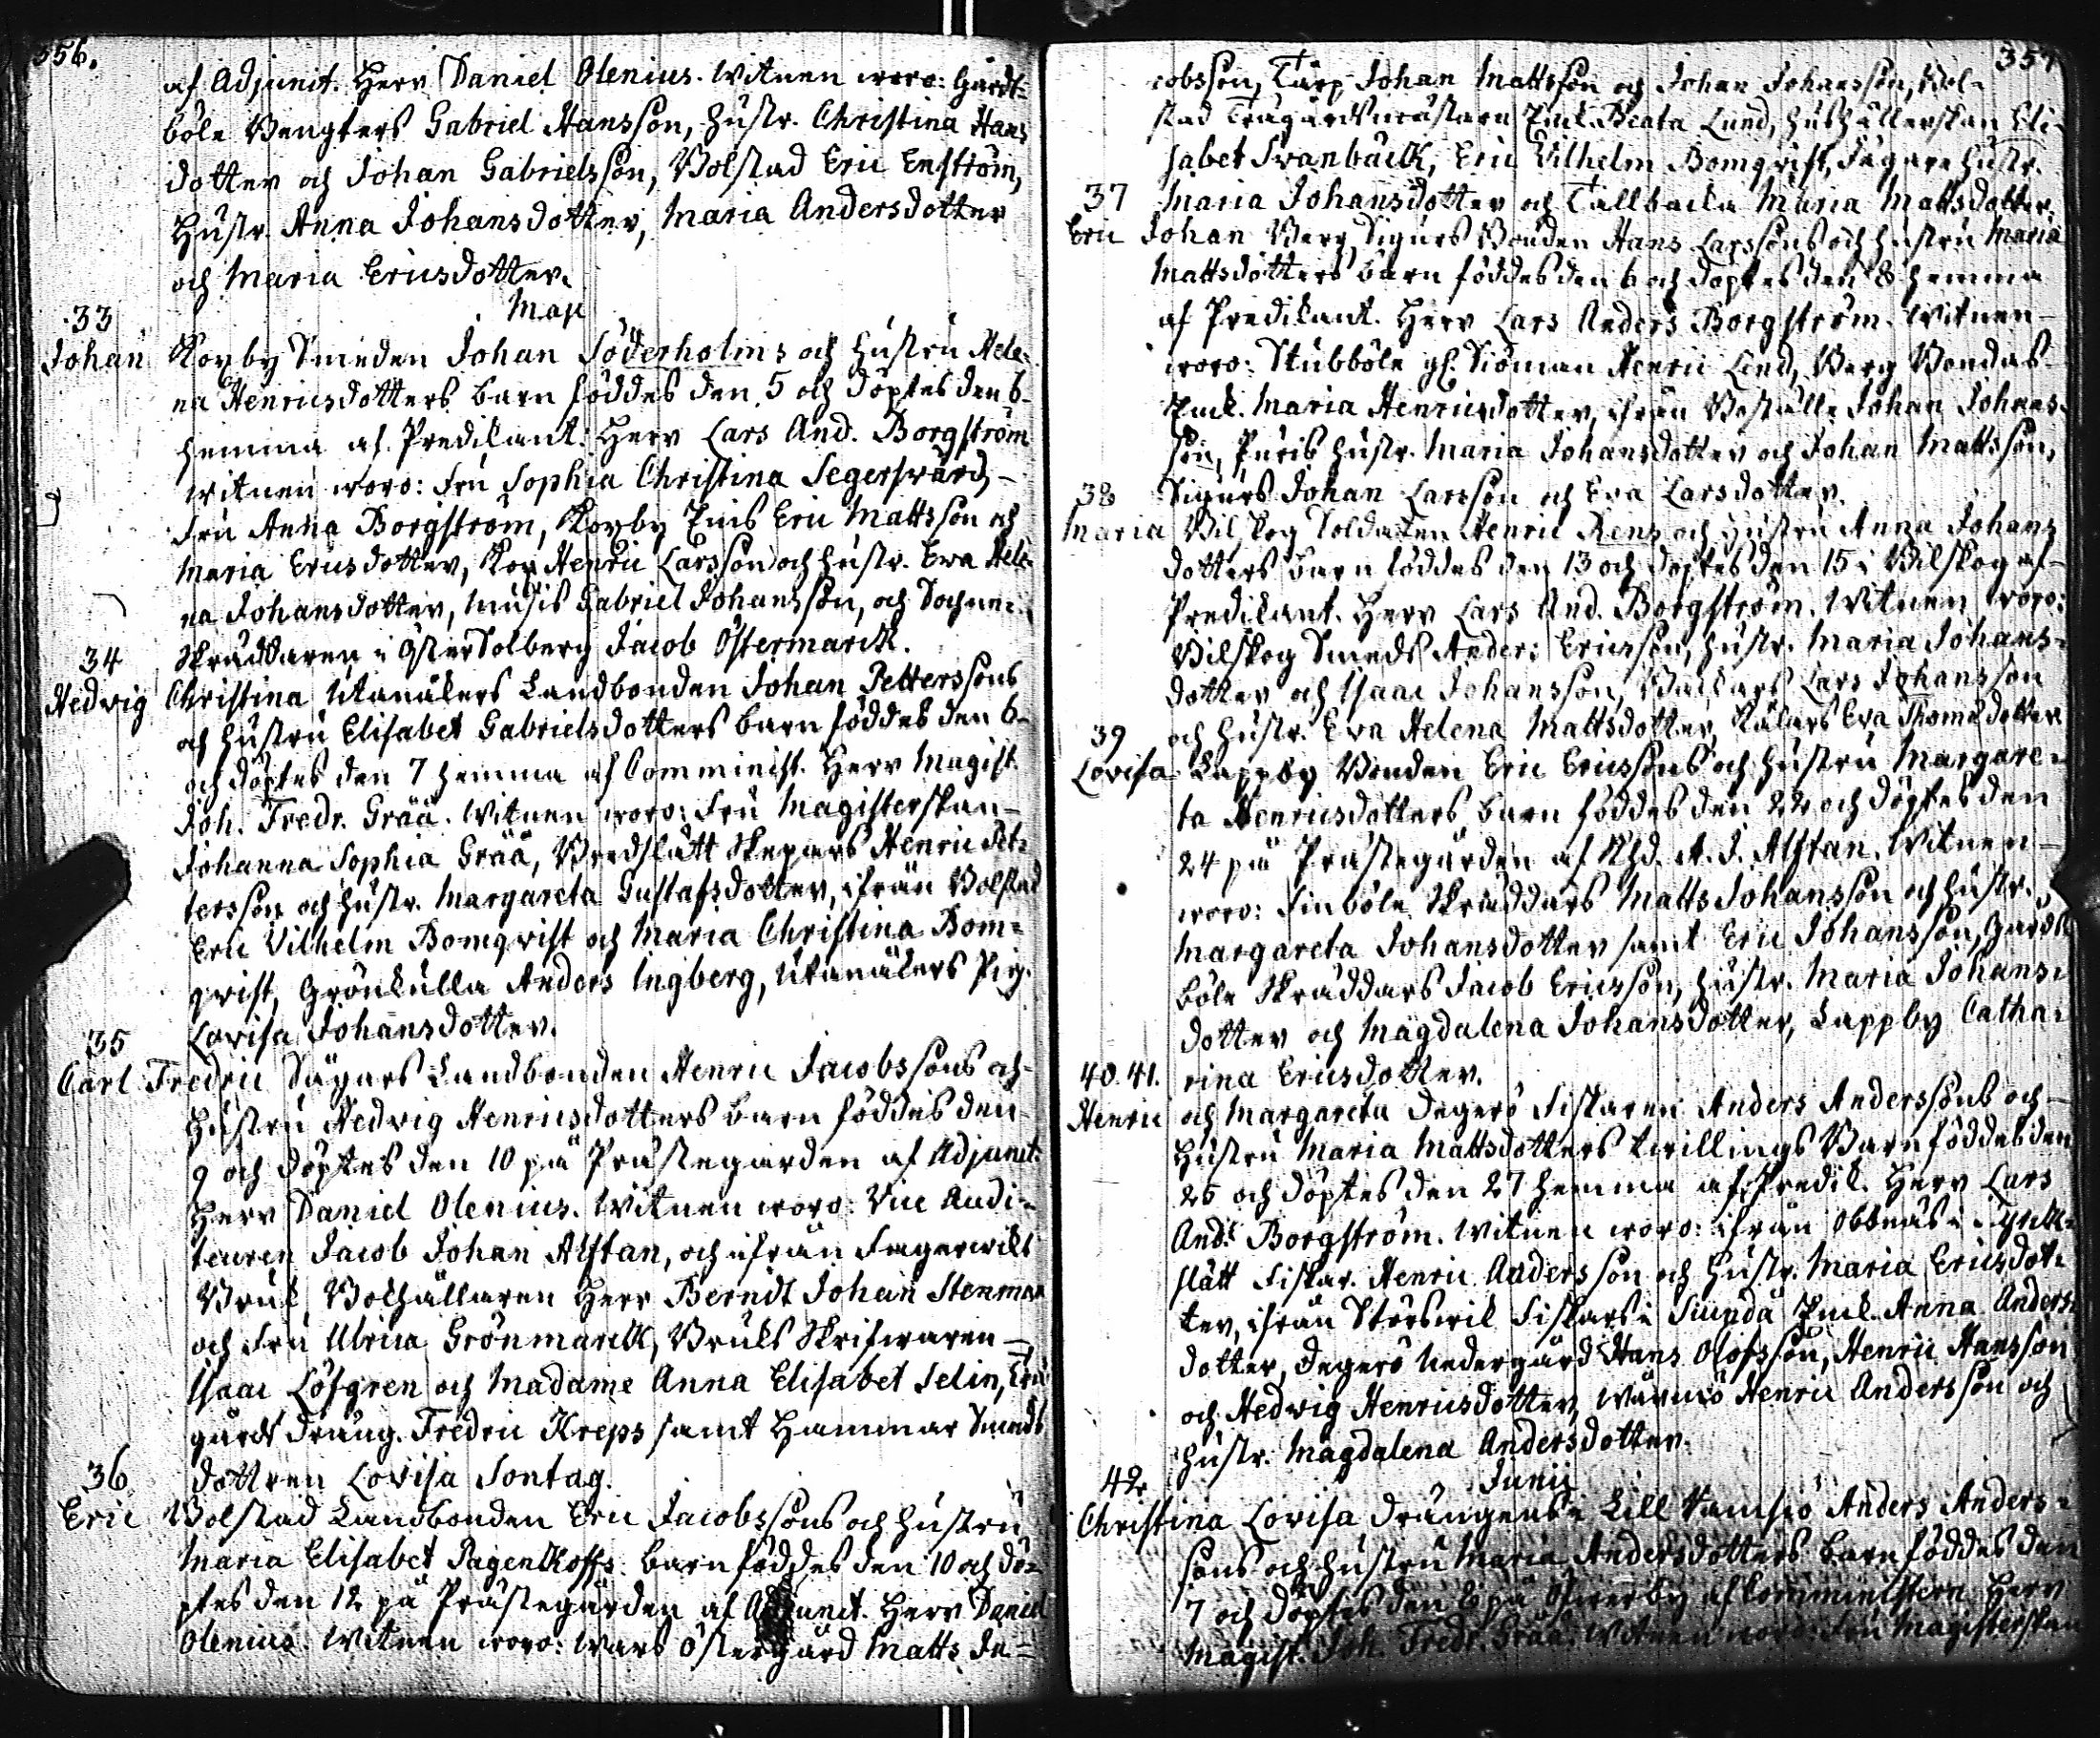 356.
af Adjunct. Herr Daniel Olenius. Witnen woro: Gårds-
böle Bengters Gabriel Hansson, hustr. Christina Hans
dotter och Johan Gabrielsson, Bolstad Eric Enström,
Hustr. Anna Johansdotter, Maria Andersdotter
och Maria Ericsdotter.
Maji
33
Johan
Kopby Smeden Johan Söderholms och hustru Hele-
na Henricsdotters barn föddes den 5 och döptes den 6
hemma af Predikant. Herr Lars And. Borgström
witnen woro: Fru Sophia Christina Segerswärd,
Fru Anna Borgström, Kopby Eric Mattsson och
Maria Ericsdotter, Henric Larsson och hustr. Eva Hele-
na Johansdotter, Gabriel Johansson, och Sochne-
Skräddaren i Öster Solberg Jacob Östermarck.
34
Hedvig
Christina Utanåkers Landbonden Johan Petterssons
och hustru Elisabet Gabrielsdotters barn föddes den 6
och döptes den 7 hemma af Comminist. Herr Magist.
Joh. Fredr. Gråå. Witnen woro: Fru Magisterskan
Johanna Sophia Gråå, Bredslätt Skepars Henric Pet-
tersson och hustr. Margareta Gustafsdotter, ifrån Bolstad
Eric Vilhelm Bomqvist och Maria Christina Bom-
qvist, Grönkulla Anders Ingberg, Utanåkers Pig.
Lovisa Johansdotter.
35
Carl Fredric Sågars Landbonden Henric Jacobssons och
Hustru Hedvig Henricsdotters barn föddes den
9 och döptes den 10 på Prästegården af Adjunct.
Herr Daniel Olenius. Witnen woro: Vice Audi-
teuren Jacob Johan Alftan, och ifrån Fagerwiks
Bruk Bokhållaren Herr Berndt Johan Stenman
och Fru Ulrica Grönmarck, Bruks Skrifwaren
Isaac Löfgren och Madame Anna Elisabet Selin,
gårds Dräng. Fredric Kreps samt Hammar Smeds
dottren Lovisa Sontag.
36
Eric
Bolstad Landbonden Eric Jacobssons och hustru
Maria Elisabet Pagenkoffs barn föddes den 10 och dö-
ptes den 12 på Prästegården af Adjunct. Herr Daniel
Olenius. Witnen woro: Wars Östergård Matts Ja-
357
cobsson, Torp Johan Mattsson och Johan Johansson, Bol-
stad Trägårdsmästaren Enk. Beata Lund, hushållerskan Eli-
sabet Svanbäck, Eric Vilhelm Bomqvist, Sågare hustr.
Maria Johansdotter och Tallbacka Maria Mattsdotter.
37
Eric
Johan Berg Sigurs Bonden Hans Larssons och hustru Maria
Mattsdotters barn föddes den 6 och döptes den 8 hemma
af Predikant. Herr Lars Anders Borgström. Witnen
woro: Stubböle gl. Siöman Henric Lind, Berg Bondas
Enk. Maria Henricsdotter, ifrån Johan Johans-
son, Puris hustr. Maria Johansdotter och Johan Mattsson,
Sigurs Johan Larsson och Eva Larsdotter.
38
Maria
Vilskog Soldaten Henric Rens och hustru Anna Johans
dotters barn föddes den 13 och döptes den 15 i Vilskog af
Predikant. Herr Lars And. Borgström. Witnen woro:
Vilskog Smeds Anders Ericsson, hustr. Maria Johans-
dotter och Isaac Johansson, Lars Johansson
och hustr. Eva Helena Mattsdotter, Eva Thomsdotter
39
Lovisa
Lappby Bonden Eric Ericssons och hustru Margare-
ta Henricsdotters barn föddes den 22 och döptes den
24 på Prästegården af A. J. Alftan. Witnen
woro: Finböle Skräddars Matts Johansson och hustr.
Margareta Johansdotter samt Eric Johansson, Gårds
böle Skräddars Jacob Ericsson, hustr. Maria Johans-
dotter och Magdalena Johansdotter, Lappby Catha-
rina Ericsdotter.
40. 41.
Henric
och Margareta Degerö Fiskaren Anders Anderssons och
Hustru Maria Mattsdotters twillings Barn föddes den
26 och döptes den 27 hemma af Predik. Herr Lars
And. Borgström. Witnen woro: ifrån Obbnäs i Kyrck-
slätt Fiskar. Henric Andersson och hustr. Maria Ericsdot-
ter, ifrån Störswik Fiskars i Siundå Enk. Anna Anders-
dotter, Degerö Nedergård Hans Olofsson, Henric Hansson
och Hedvig Henricsdotter, Wärmö Henric Andersson och
hustr. Magdalena Andersdotter.
Junij
42
Christina Lovisa Drängens i Lill Ramsiö Anders Anders-
sons och hustru Maria Andersdotters barn föddes den
7 och döptes den 8 på af Comministern Herr
Magist. Joh. Fredr. Gråå. Witnen woro: Fru Magisterskan